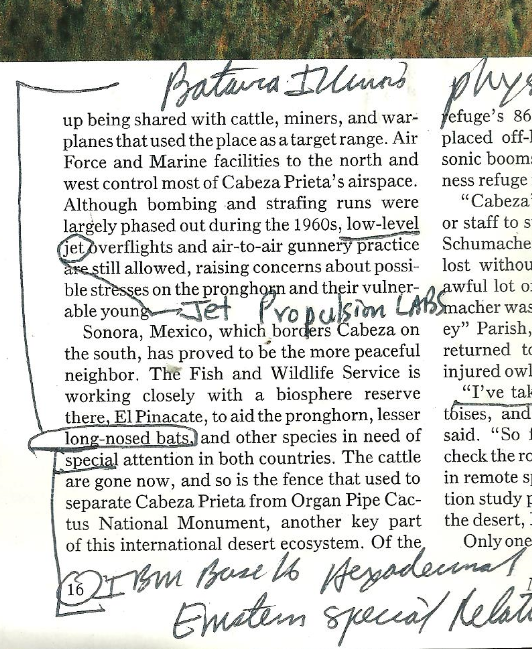 Batavia Illinois
up being shared with cattle, miners, and war-
planes that used the place as a target range. Air
Force and Marine facilities to the north and
west control most of Cabeza Prieta's airspace.
Although bombing and strafing runs were
largely phased out during the 1960s, low-level
jet overflights and air-to-air gunnery practice
are still allowed, raising concerns about possi-
ble stresses on the pronghorn and their vulner-
able young.
Jet Propulsion LABS
Sonora, Mexico, which borders Cabeza on
the south, has proved to be the more peaceful
neighbor. The Fish and Wildlife Service is
working closely with a biosphere reserve
there, El Pinacate, to aid the pronghorn, lesser
long-nosed bats, and other species in need of
special attention in both countries. The cattle
are gone now, and so is the fence that used to
separate Cabeza Prieta from Organ Pipe Cac-
tus National Monument, another key part
of this international desert ecosystem. Of the
16
IBM Base 16 Hexadecimal
Einstein special Relat
phys
refuge's 86
placed off-l
sonic boom
ness refuge
"Cabeza'
or staff to s
Schumache
lost withou
awful lot o
macher was
ey" Parish,
returned to
injured owl
"I've tak
toises, and
said. "So f
check the ro
in remote sp
tion study p
the desert, I
Only one